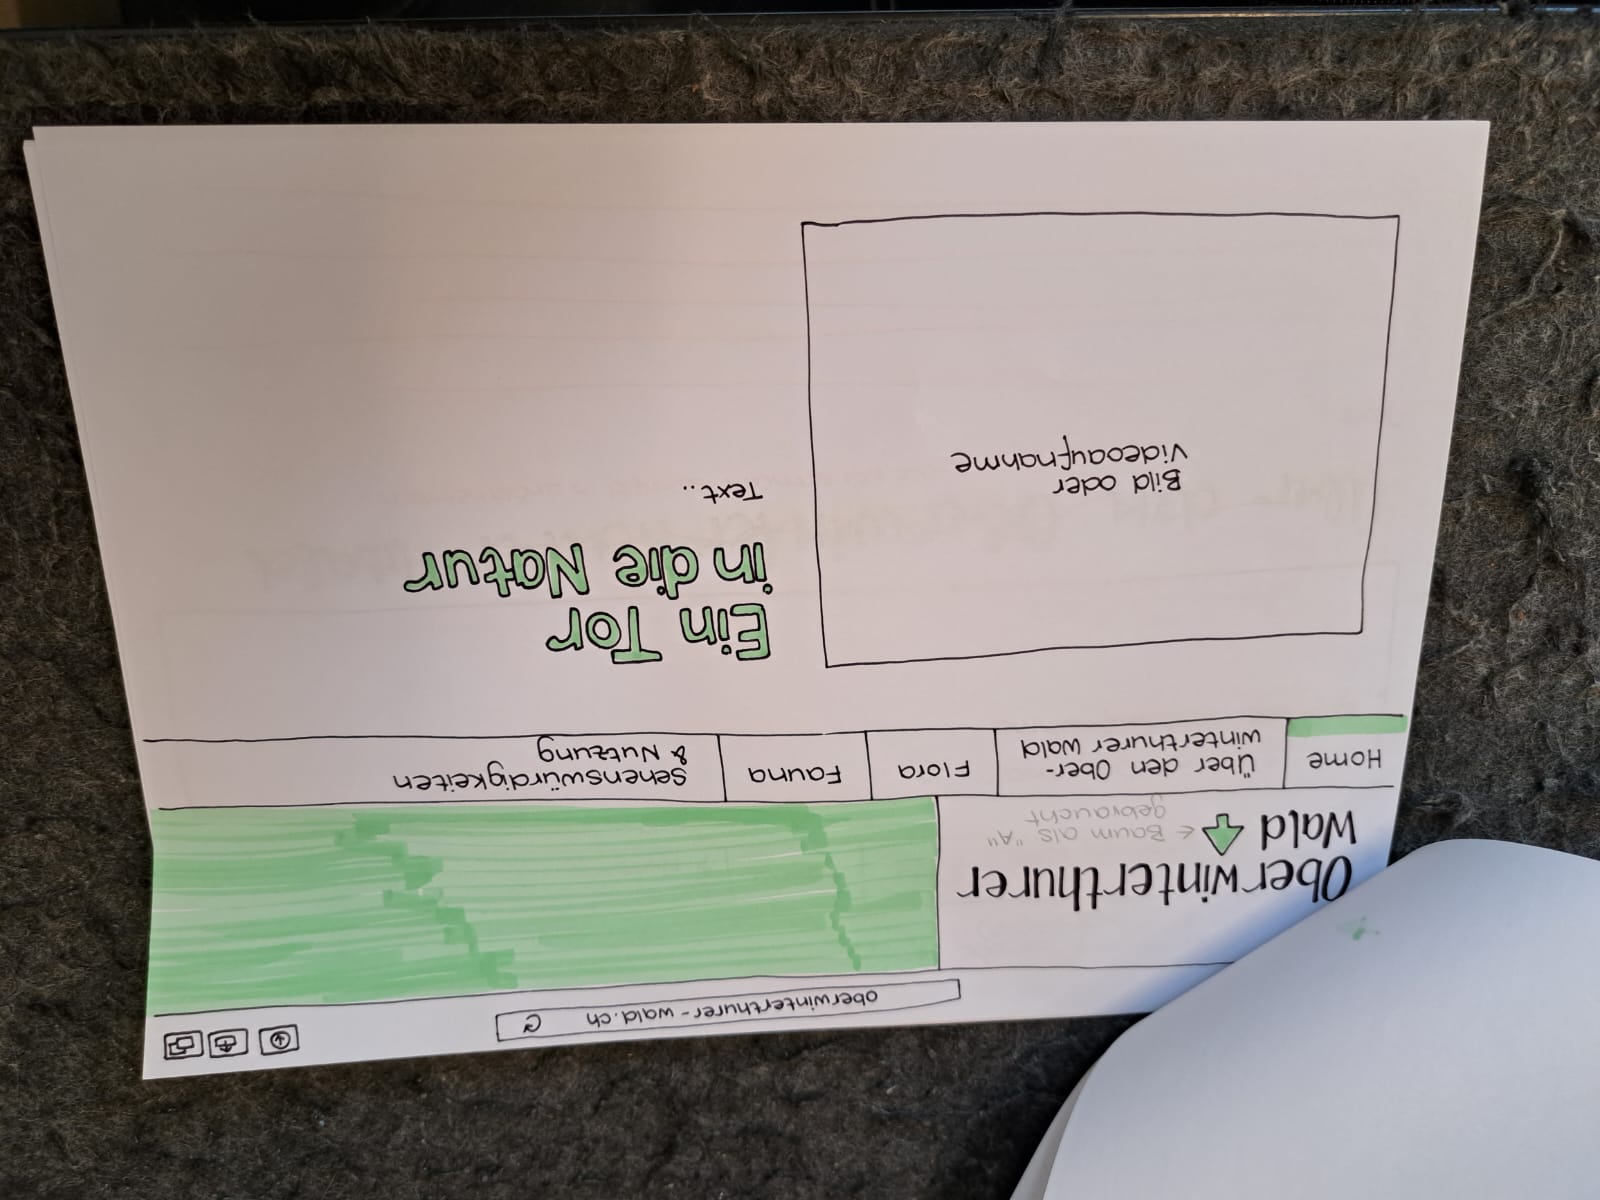 oberwinterthurer-wald.ch
Oberwinterthurer
Wald
← Baum als "A"
gebraucht
Home
Über den Ober-
winterthurer Wald
Flora
Fauna
Sehenswürdigkeiten
& Nutzung
Bild oder
Videoaufnahme
Ein Tor
in die Natur
Text..